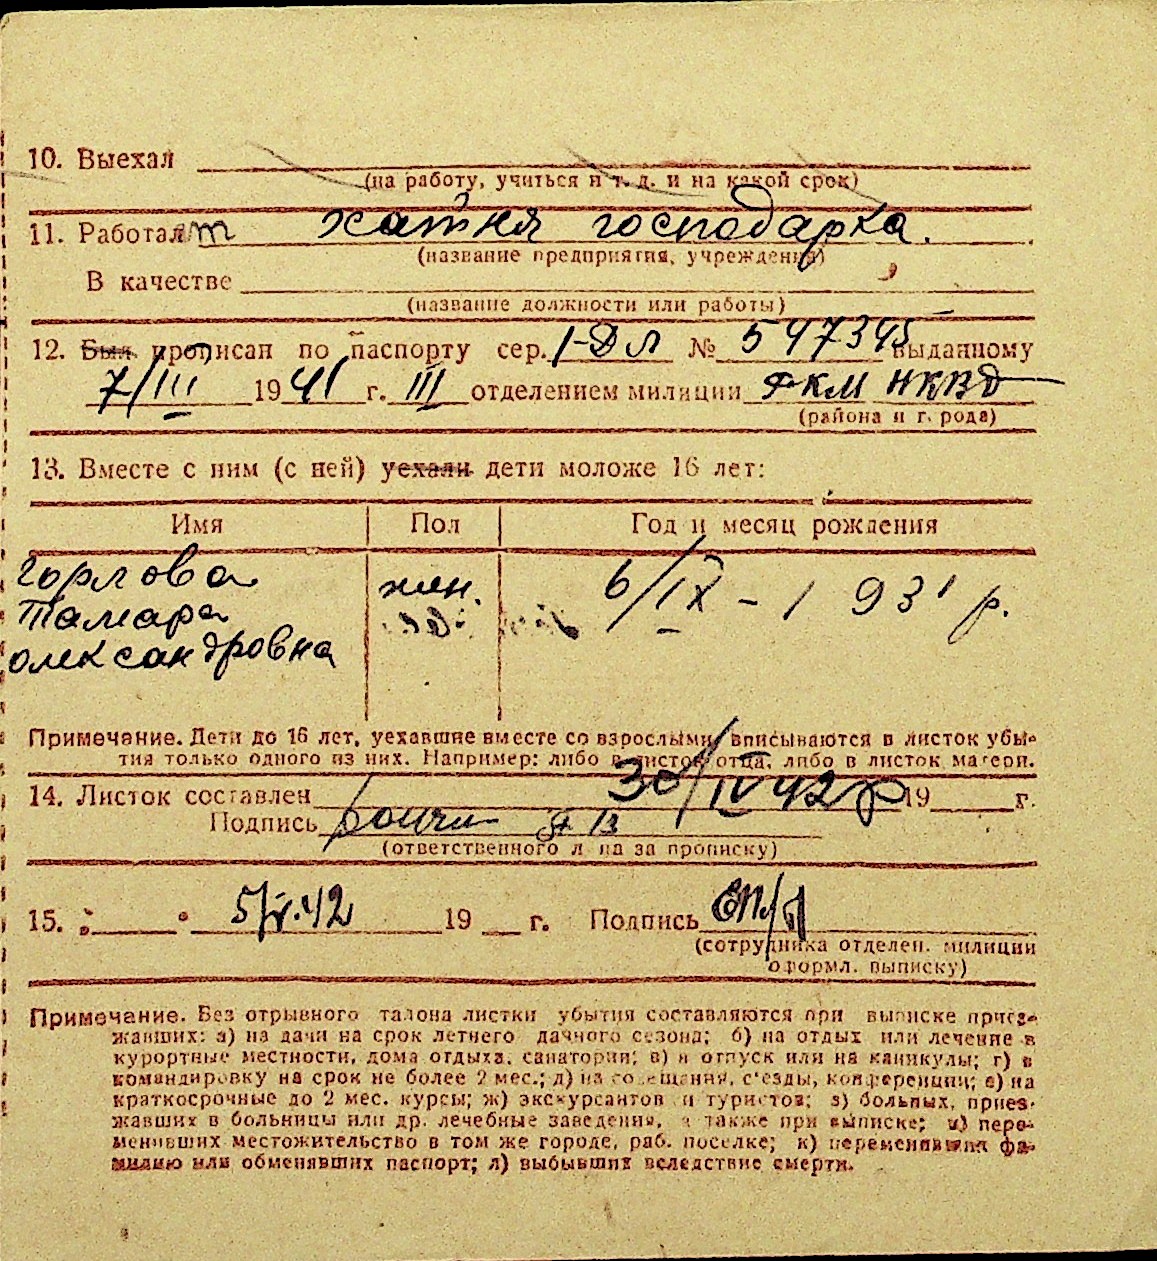 10. Выехал
(на работу, учиться и т. д. и на какой срок)
11. Работает хатня господарка.
(название предприятия, учреждения)
В качестве
(название должности или работы)
12. Был прописан по паспорту сер. I-ДЛ № 547345 выданному
7/III 1941 г. III отделением милиции РКМ НКВД
(района и г. рода)
13. Вместе с ним (с ней) уехали дети моложе 16 лет:
Имя Пол Год и месяц рождения
Горлова жен. 6/IX - 1931 р.
Тамара
Олександровна
Примечание. Дети до 16 лет, уехавшие вместе со взрослыми, вписываются в листок убы-
тия только одного из них. Например: либо в листок отца, либо в листок матери.
14. Листок составлен 30/IV 42 р 19 г.
Подпись
(ответственного л на за прописку)
15. " " 5/V.42 19 г. Подпись
(сотрудника отделен. милиции
оформл. выписку)
Примечание. Без отрывного талона листки убытия составляются при выписке приез-
жавших: а) на дачи на срок летнего дачного сезона; б) на отдых или лечение в
курортные местности, дома отдыха, санатории; в) в отпуск или на каникулы; г) в
командировку на срок не более 2 мес.; д) на совещания, с'езды, конференции; е) на
краткосрочные до 2 мес. курсы; ж) экскурсантов и туристов; з) больных, приез-
жавших в больницы или др. лечебные заведения, а также при выписке; и) пере-
менивших местожительство в том же городе, раб. поселке; к) переменивших фа-
милию или обменявших паспорт; л) выбывших вследствие смерти.